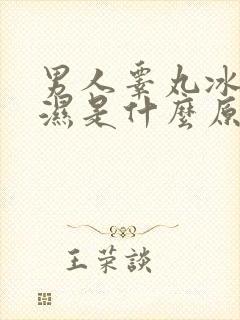 男人睾丸冰
濕是什麼原
王荣談